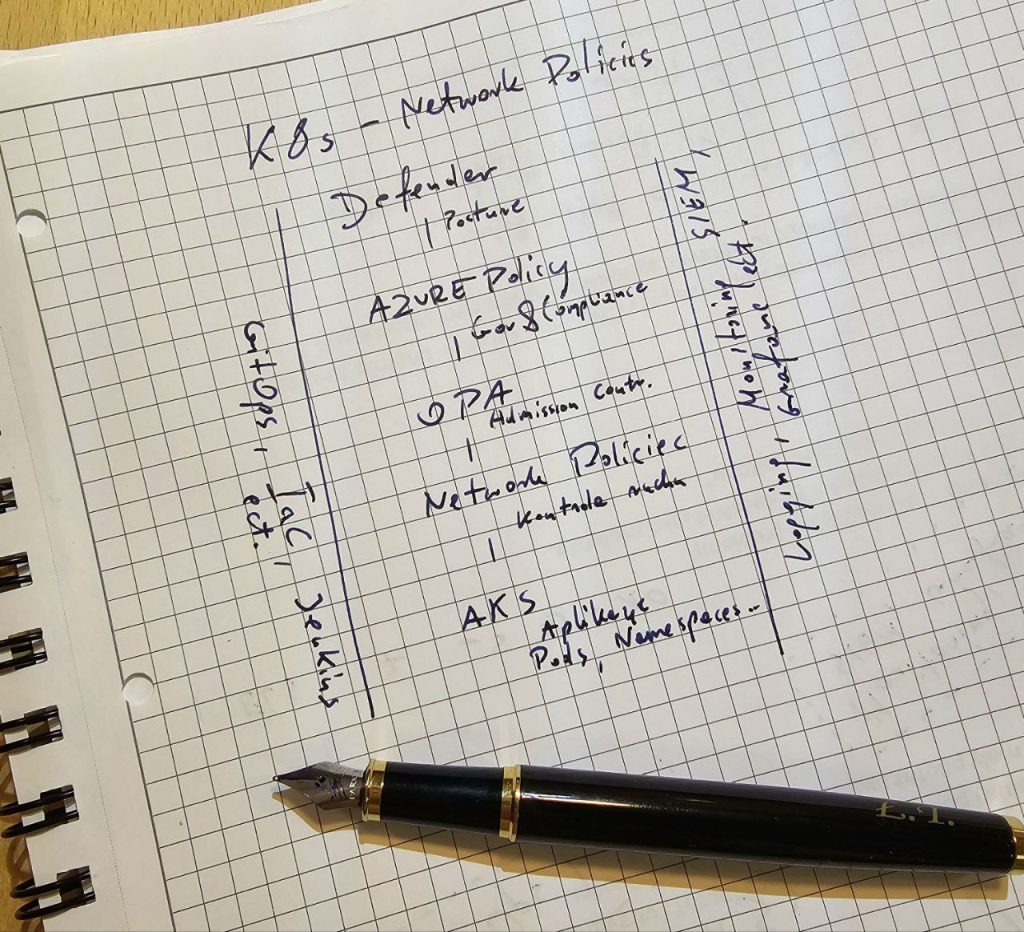 K8s - Network Policies
Defender
Posture
AZURE Policy
Gov & Compliance
OPA
Admission contr.
Network Policies
Kontrola ruchu
AKS
Aplikacje
Pods, Namespaces..
GitOps, IaC, Jenkins
ect.
SIEM,
Monitoring
Logging, Grafana, ect.
Ł.T.